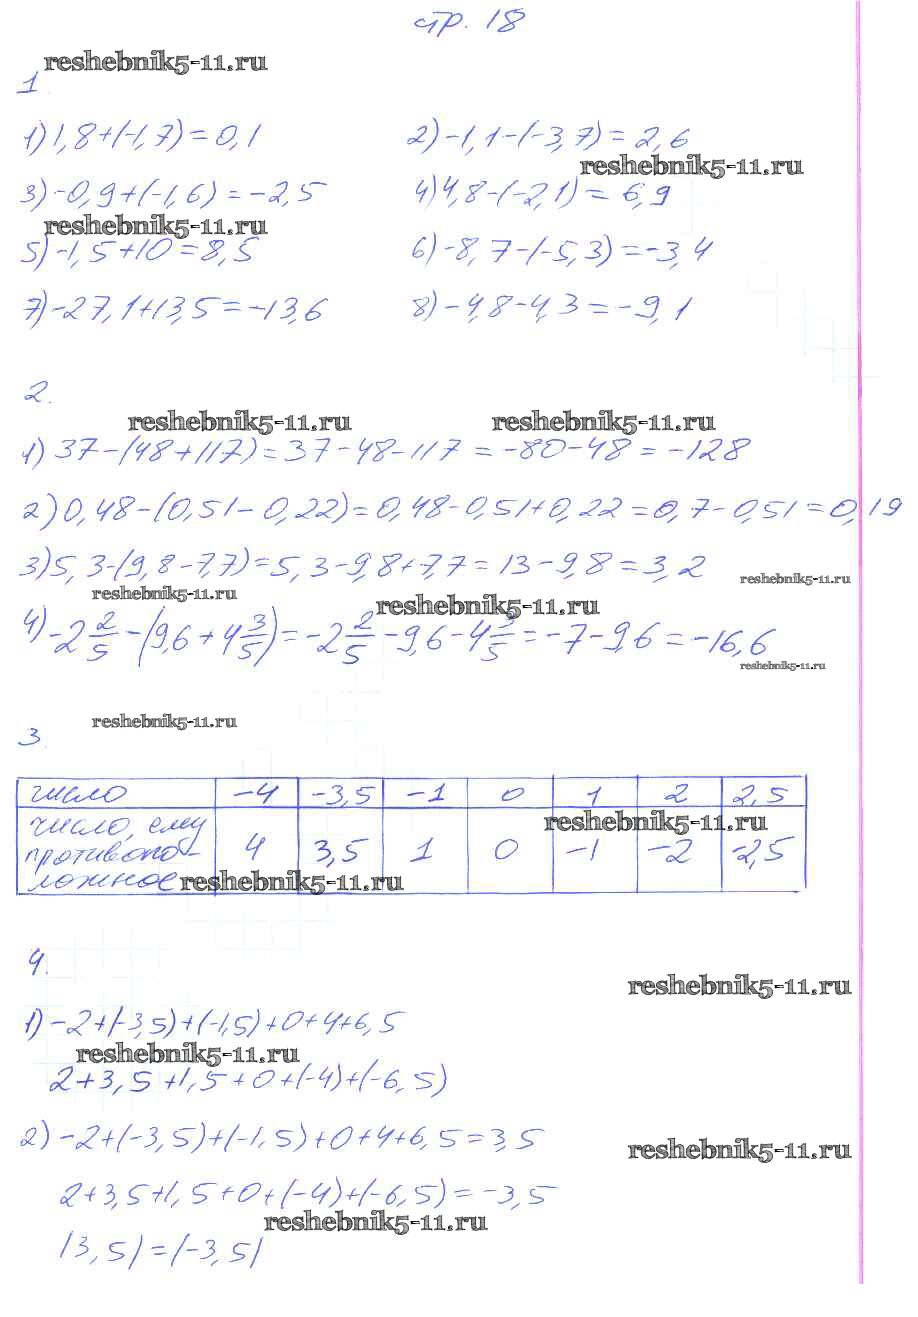 стр. 18
reshebnik5-11.ru
1
1) 1,8+(-1,7)=0,1 2) -1,1-(-3,7)=2,6
reshebnik5-11.ru
3) -0,9+(-1,6)=-2,5 4) 4,8-(-2,1)=6,9
reshebnik5-11.ru
5) -1,5+10=8,5 6) -8,7-(-5,3)=-3,4
7) -27,1+13,5=-13,6 8) -4,8-4,3=-9,1
2.
reshebnik5-11.ru reshebnik5-11.ru
1) 37-(48+117)=37-48-117=-80-48=-128
2) 0,48-(0,51-0,22)=0,48-0,51+0,22=0,7-0,51=0,19
3) 5,3-(9,8-7,7)=5,3-9,8+7,7=13-9,8=3,2
reshebnik5-11.ru
reshebnik5-11.ru reshebnik5-11.ru
4) -2 2/5-(9,6+4 3/5)=-2 2/5-9,6-4 3/5=-7-9,6=-16,6
reshebnik5-11.ru
reshebnik5-11.ru
3.
число -4 -3,5 -1 0 1 2 2,5
reshebnik5-11.ru
число, ему
противопо- 4 3,5 1 0 -1 -2 -2,5
ложное
reshebnik5-11.ru
4.
reshebnik5-11.ru
1) -2+(-3,5)+(-1,5)+0+4+6,5
reshebnik5-11.ru
2+3,5+1,5+0+(-4)+(-6,5)
2) -2+(-3,5)+(-1,5)+0+4+6,5=3,5
reshebnik5-11.ru
2+3,5+1,5+0+(-4)+(-6,5)=-3,5
reshebnik5-11.ru
|3,5|=|-3,5|